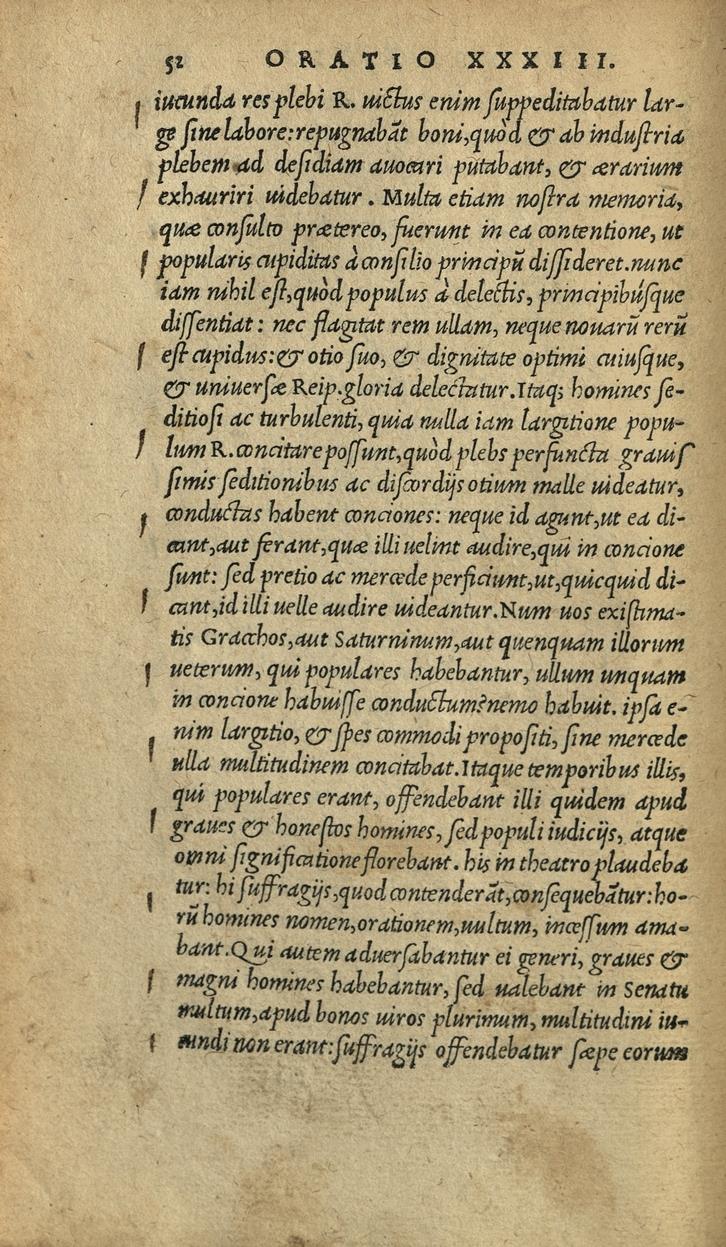 52 ORATIO XXXIII.
iucunda res plebi R. uictus enim suppeditabatur lar-
ge sine labore: repugnabāt boni, quòd & ab industria
plebem ad desidiam auocari putabant, & ærarium
exhauriri uidebatur. Multa etiam nostra memoria,
quæ consulto prætereo, fuerunt in ea contentione, ut
popularis cupiditas à consilio principū dissideret. nunc
iam nihil est, quòd populus à delectis, principibúsque
dissentiat: nec flagitat rem ullam, neque nouarū rerū
est cupidus: & otio suo, & dignitate optimi cuiusque,
& uniuersæ Reip. gloria delectatur. Itaq; homines se-
ditiosi ac turbulenti, quia nulla iam largitione popu-
lum R. concitare possunt, quòd plebs perfuncta grauis
simis seditionibus ac discordijs otium malle uideatur,
conductas habent conciones: neque id agunt, ut ea di-
cant, aut ferant, quæ illi uelint audire, qui in concione
sunt: sed pretio ac mercede perficiunt, ut, quicquid di-
cant, id illi uelle audire uideantur. Num uos existima-
tis Gracchos, aut Saturninum, aut quenquam illorum
ueterum, qui populares habebantur, ullum unquam
in concione habuisse conductum? nemo habuit. ipsa e-
nim largitio, & spes commodi propositi, sine mercede
ulla multitudinem concitabat. Itaque temporibus illis,
qui populares erant, offendebant illi quidem apud
graues & honestos homines, sed populi iudicijs, atque
omni significatione florebant. his in theatro plaudeba
tur: hi suffragijs, quod contenderāt, consequebātur: ho-
rū homines nomen, orationem, uultum, incessum ama-
bant. Qui autem aduersabantur ei generi, graues &
magni homines habebantur, sed ualebant in Senatu
multum, apud bonos uiros plurimum, multitudini iu-
cundi non erant: suffragijs offendebatur sæpe eorum